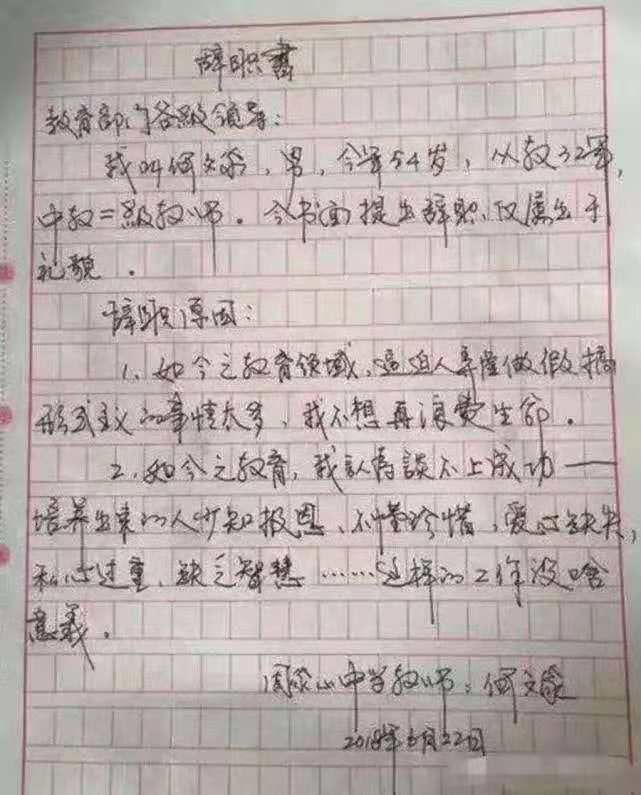 辞职书
教育部门各级领导：
我叫何文家，男，今年54岁，从教32年，
中教二级教师。今书面提出辞职，仅属出于
礼貌。
辞职原因：
1、如今之教育领域，逼迫人弄虚做假搞
形式主义的事情太多，我不想再浪费生命。
2、如今之教育，我认为談不上成功——
培养出来的人少知报恩、不懂珍惜，爱心缺失，
私心过重，缺乏智慧……这样的工作没啥
意義。
中学教师：何文家
2018年 月22日